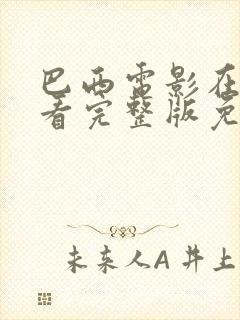 巴西雷影在
看完整版免
未来人A 井上